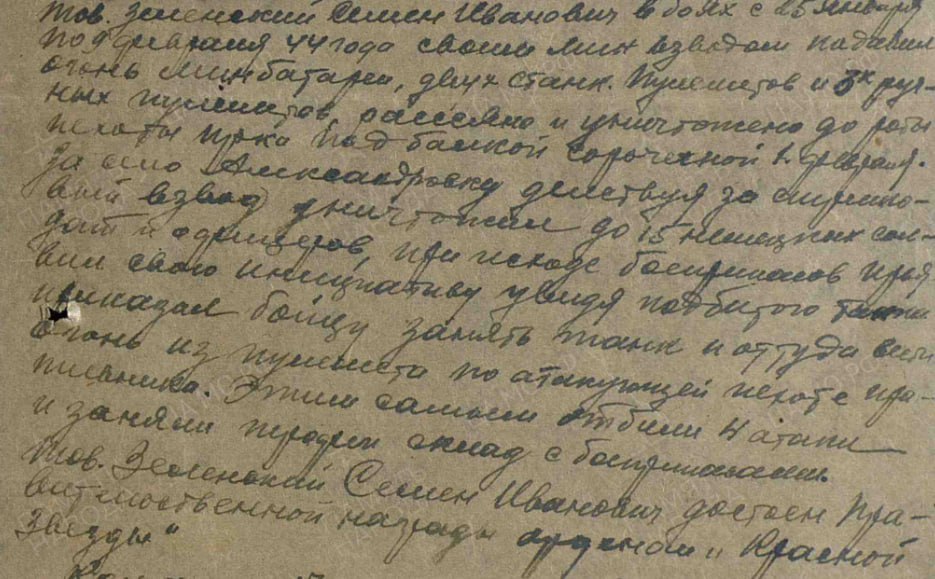 тов. Зеленский Семен Иванович в боях с 25 января
по 9 февраля 44 года своим мин взводом подавил
огонь минбатареи, двух станк. пулеметов и 3х руч-
ных пулеметов, рассеяно и уничтожено до роты
пехоты пр-ка под балкой Сорочechной 2 февраля.
За село Александровку действуя за стрелко-
вый взвод уничтожил до 15 немецких сол-
дат и офицеров, при исходе боеприпасов проя
вил свою инициативу увидя подбитого танка
приказал бойцу занять танк и оттуда вести
огонь из пулемета по атакующей пехоте про-
тивника. Этим самым отбили 4 атаки
и заняли склад с боеприпасами.
Тов. Зеленский Семен Иванович достоин пра-
вительственной награды орденом „Красной
Звезды"